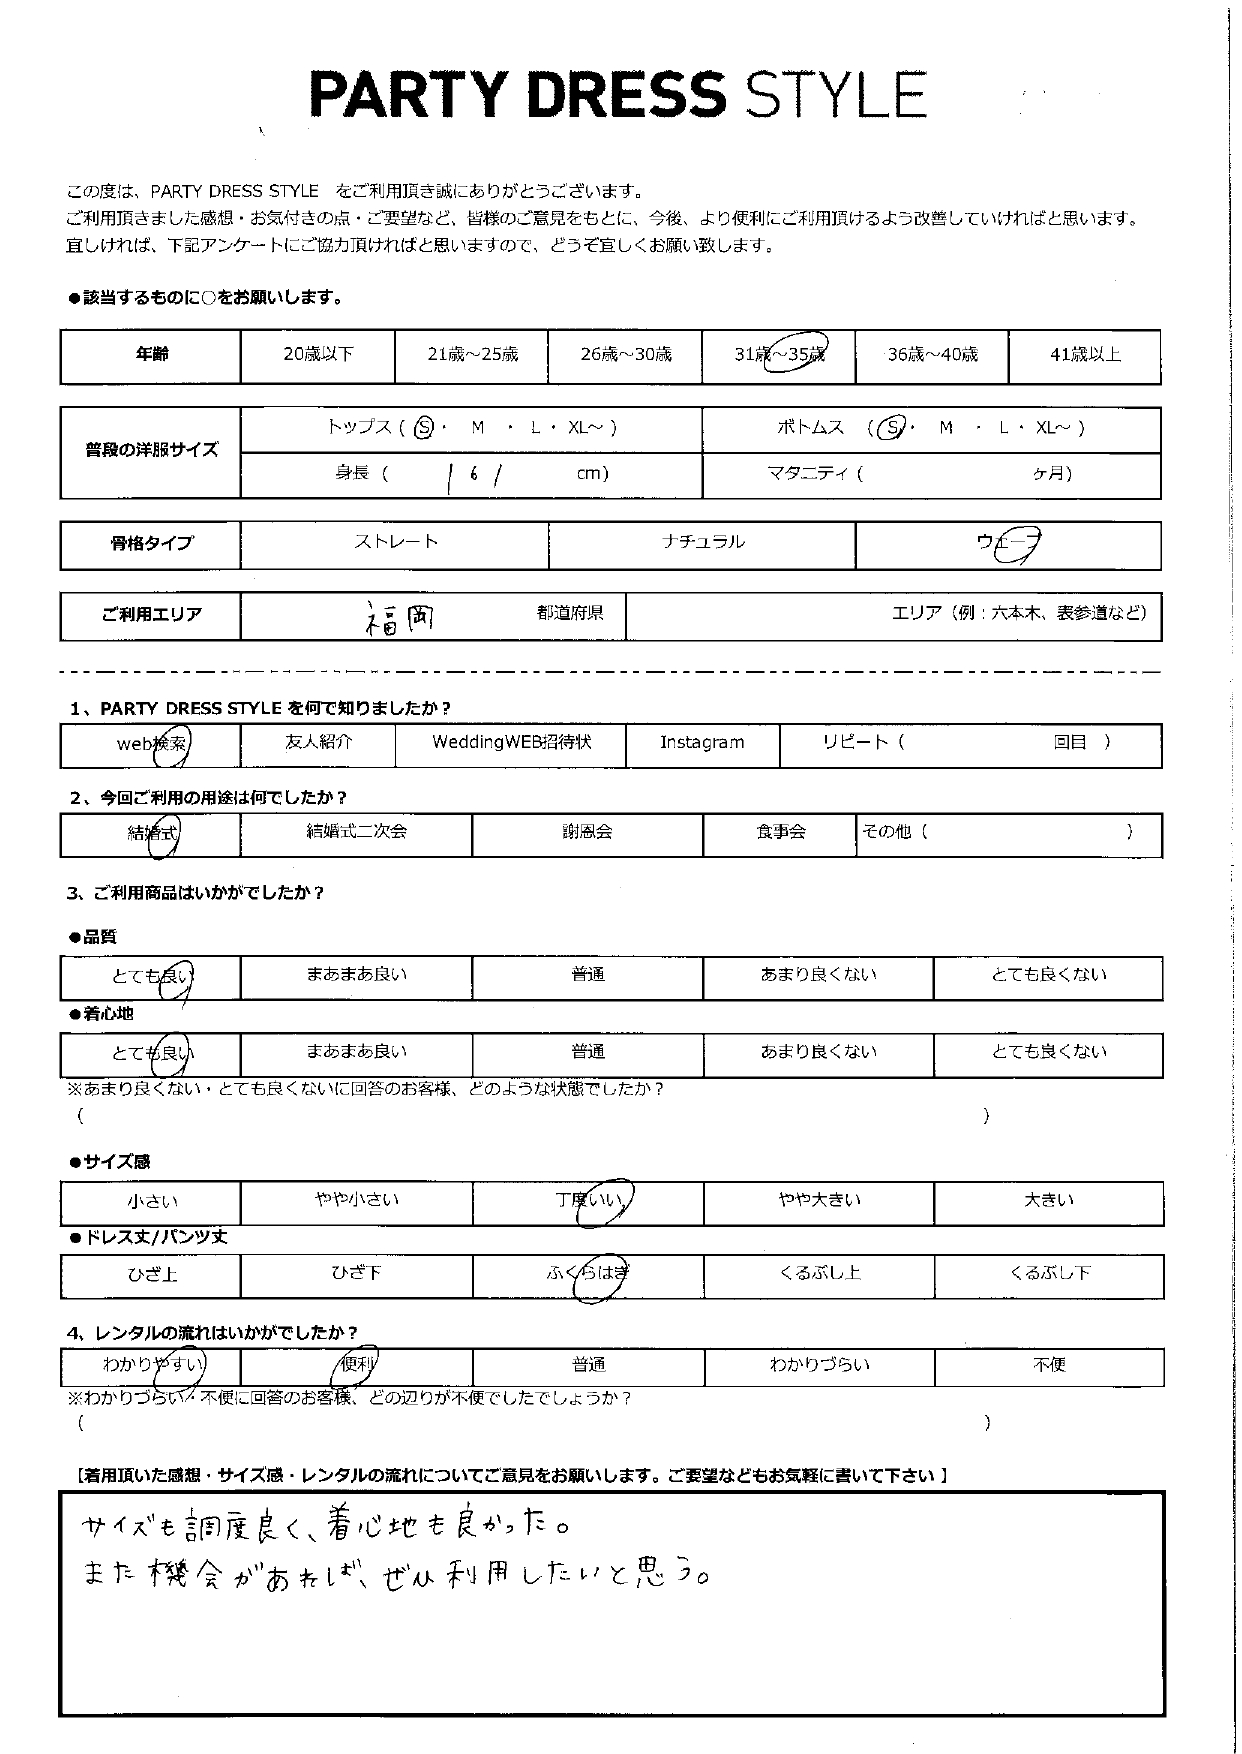 PARTY DRESS STYLE
この度は、PARTY DRESS STYLE をご利用頂き誠にありがとうございます。
ご利用頂きました感想・お気付きの点・ご要望など、皆様のご意見をもとに、今後、より便利にご利用頂けるよう改善していければと思います。
宜しければ、下記アンケートにご協力頂ければと思いますので、どうぞ宜しくお願い致します。
●該当するものに○をお願いします。
年齢 20歳以下 21歳～25歳 26歳～30歳 31歳～35歳 36歳～40歳 41歳以上
普段の洋服サイズ トップス ( S ・ M ・ L ・ XL～ ) ボトムス ( S ・ M ・ L ・ XL～ )
身長 ( 161 cm) マタニティ ( ヶ月)
骨格タイプ ストレート ナチュラル ウェーブ
ご利用エリア 福岡 都道府県 エリア (例：六本木、表参道など)
1、PARTY DRESS STYLE を何で知りましたか？
web検索 友人紹介 WeddingWEB招待状 Instagram リピート ( 回目 )
2、今回ご利用の用途は何でしたか？
結婚式 結婚式二次会 謝恩会 食事会 その他 ( )
3、ご利用商品はいかがでしたか？
●品質
とても良い まあまあ良い 普通 あまり良くない とても良くない
●着心地
とても良い まあまあ良い 普通 あまり良くない とても良くない
※あまり良くない・とても良くないに回答のお客様、どのような状態でしたか？
( )
●サイズ感
小さい やや小さい 丁度いい やや大きい 大きい
●ドレス丈/パンツ丈
ひざ上 ひざ下 ふくらはぎ くるぶし上 くるぶし下
4、レンタルの流れはいかがでしたか？
わかりやすい 便利 普通 わかりづらい 不便
※わかりづらい・不便に回答のお客様、どの辺りが不便でしたでしょうか？
( )
【着用頂いた感想・サイズ感・レンタルの流れについてご意見をお願いします。ご要望などもお気軽に書いて下さい】
サイズも調度良く、着心地も良かった。
また機会があれば、ぜひ利用したいと思う。